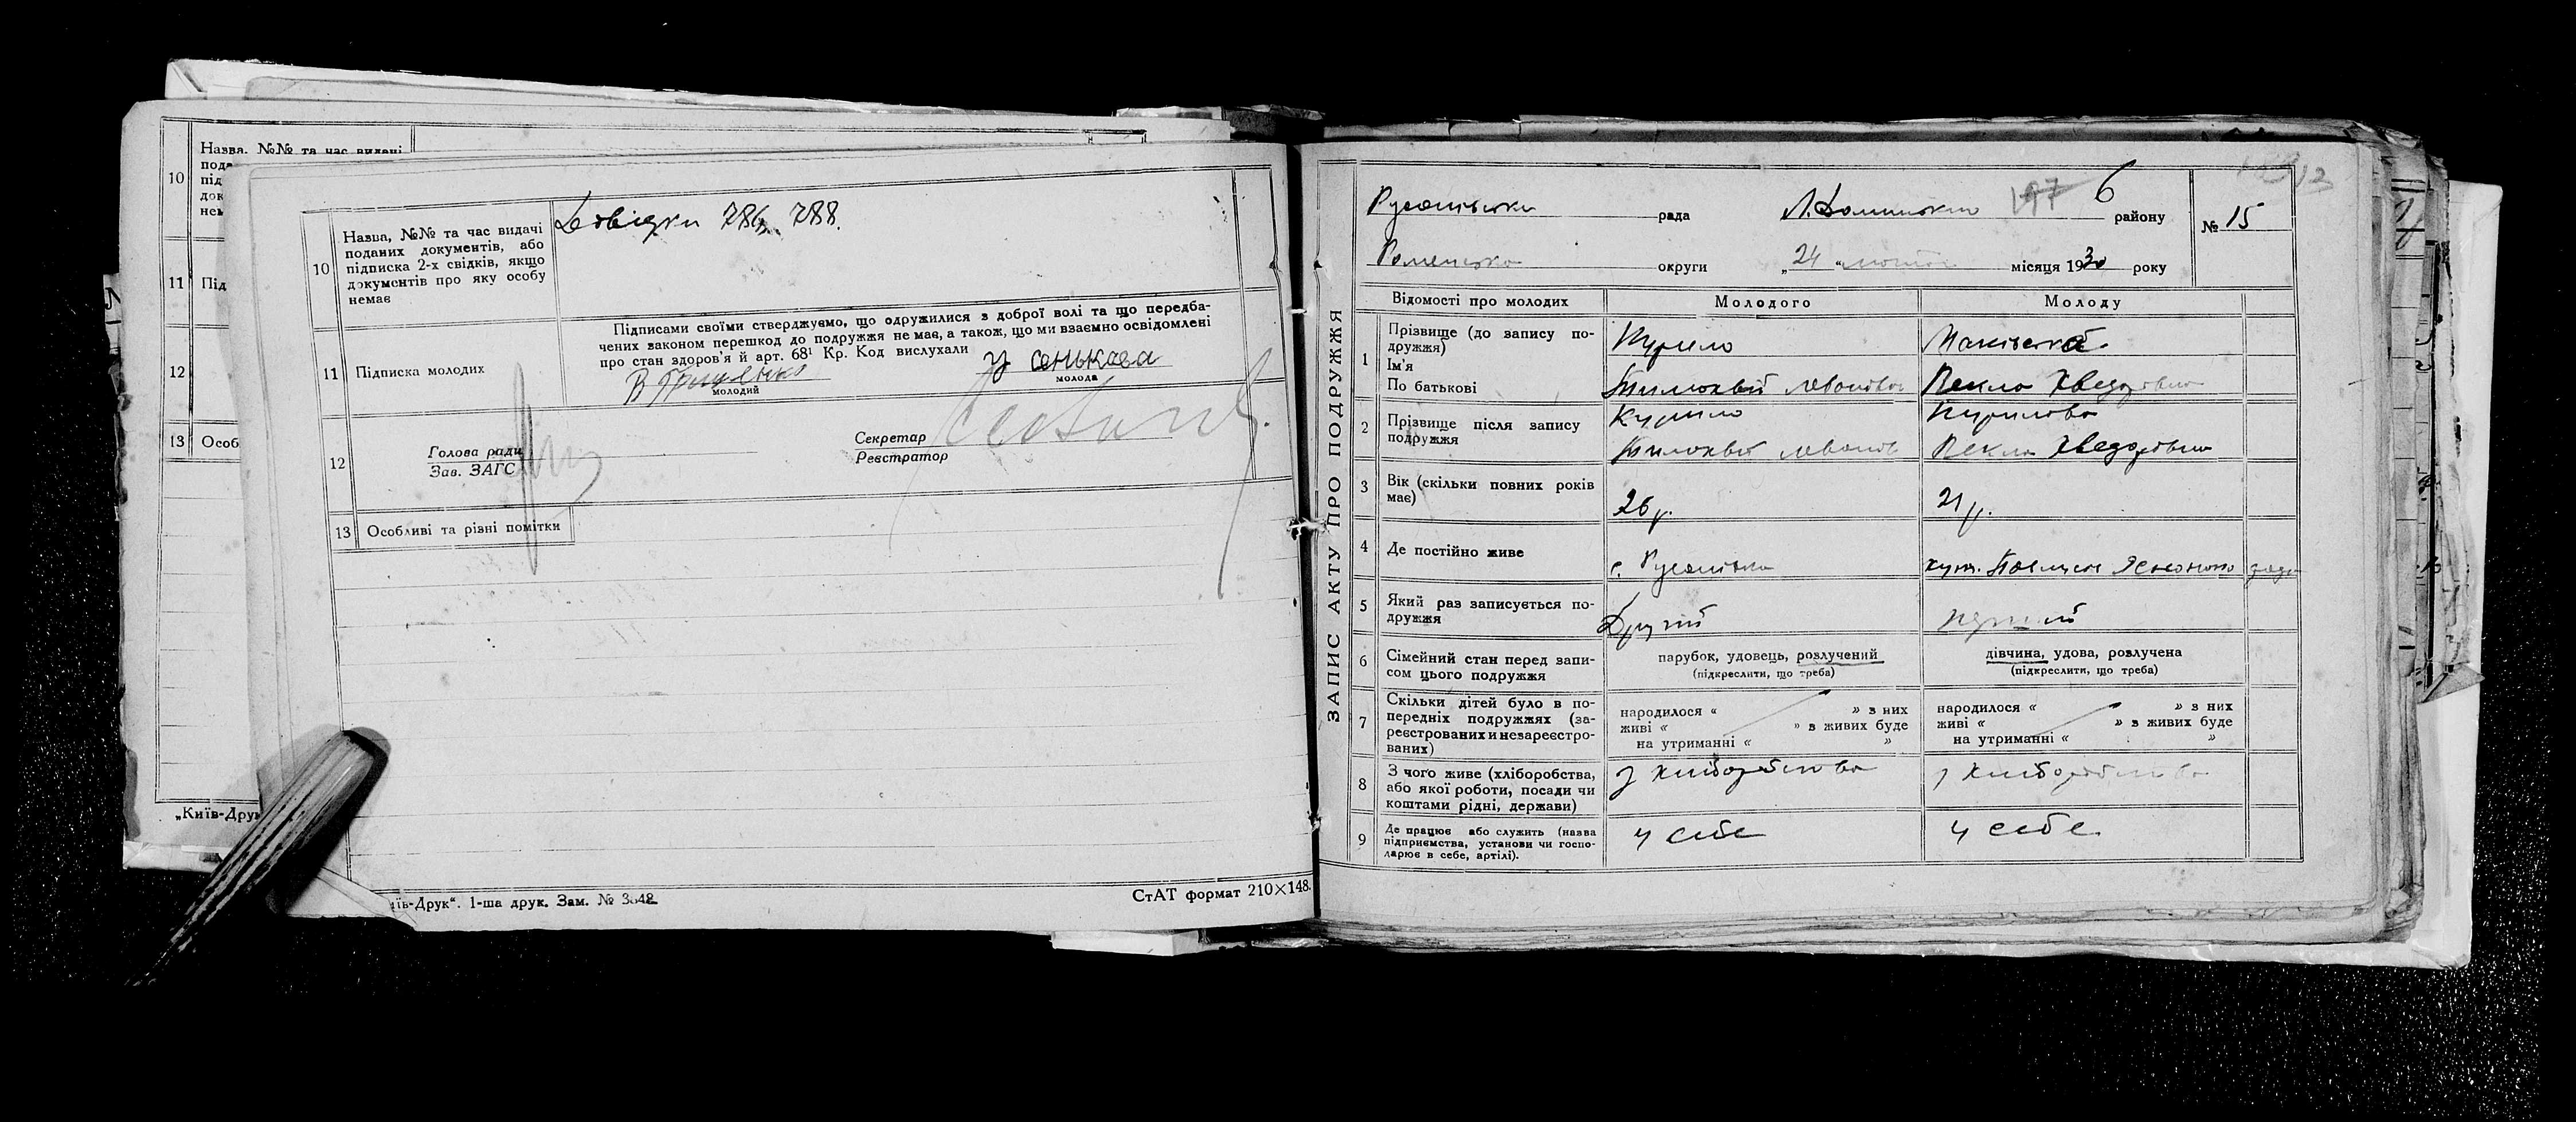 10
Назва, №№ та час видачі
11
Під
12
13
Особ
„Київ-Друк
10
Назва, №№ та час видачі
поданих документів, або
підписка 2-х свідків, якщо
документів про яку особу
немає
Довідки 786, 788.
11
Підписка молодих
Підписами своїми стверджуємо, що одружилися з доброї волі та що передба-
чених законом перешкод до подружжя не має, а також, що ми взаємно освідомлені
про стан здоров'я й арт. 68¹ Кр. Код вислухали
В Грищенко
молодий
молода
12
Голова ради
Зав. ЗАГС
Секретар
Реєстратор
13
Особливі та різні помітки
їв-Друк“. 1-ша друк. Зам. № 3548
СтАТ формат 210×148.
ЗАПИС АКТУ ПРО ПОДРУЖЖЯ
Русанівська рада
Л.Долинського 197 6 району
№ 15
Роменської округи
„24“ лютого місяця 1930 року
Відомості про молодих
Молодого
Молоду
1
Прізвище (до запису по-
дружжя)
Ім'я
По батькові
Курило
Тимохвій
Маківська
Векла Хведорівна
2
Прізвище після запису
подружжя
Курило
Тимохвій
Курилова
Векла Хведорівна
3
Вік (скільки повних років
має)
26 р.
21 р.
4
Де постійно живе
с. Русанівка
хут.
5
Який раз записується по-
дружжя
Другий
перший
6
Сімейний стан перед запи-
сом цього подружжя
парубок, удовець, розлучений
(підкреслити, що треба)
дівчина, удова, розлучена
(підкреслити, що треба)
7
Скільки дітей було в по-
передніх подружжях (за-
реєстрованих и незареєстро-
ваних)
народилося «     » з них
живі «     » в живих буде
на утриманні «     »
народилося «     » з них
живі «     » в живих буде
на утриманні «     »
8
З чого живе (хліборобства,
або якої роботи, посади чи
коштами рідні, держави)
з хліборобства
з хліборобства
9
Де працює або служить (назва
підприємства, установи чи госпо-
дарює в себе, артілі).
у себе
у себе